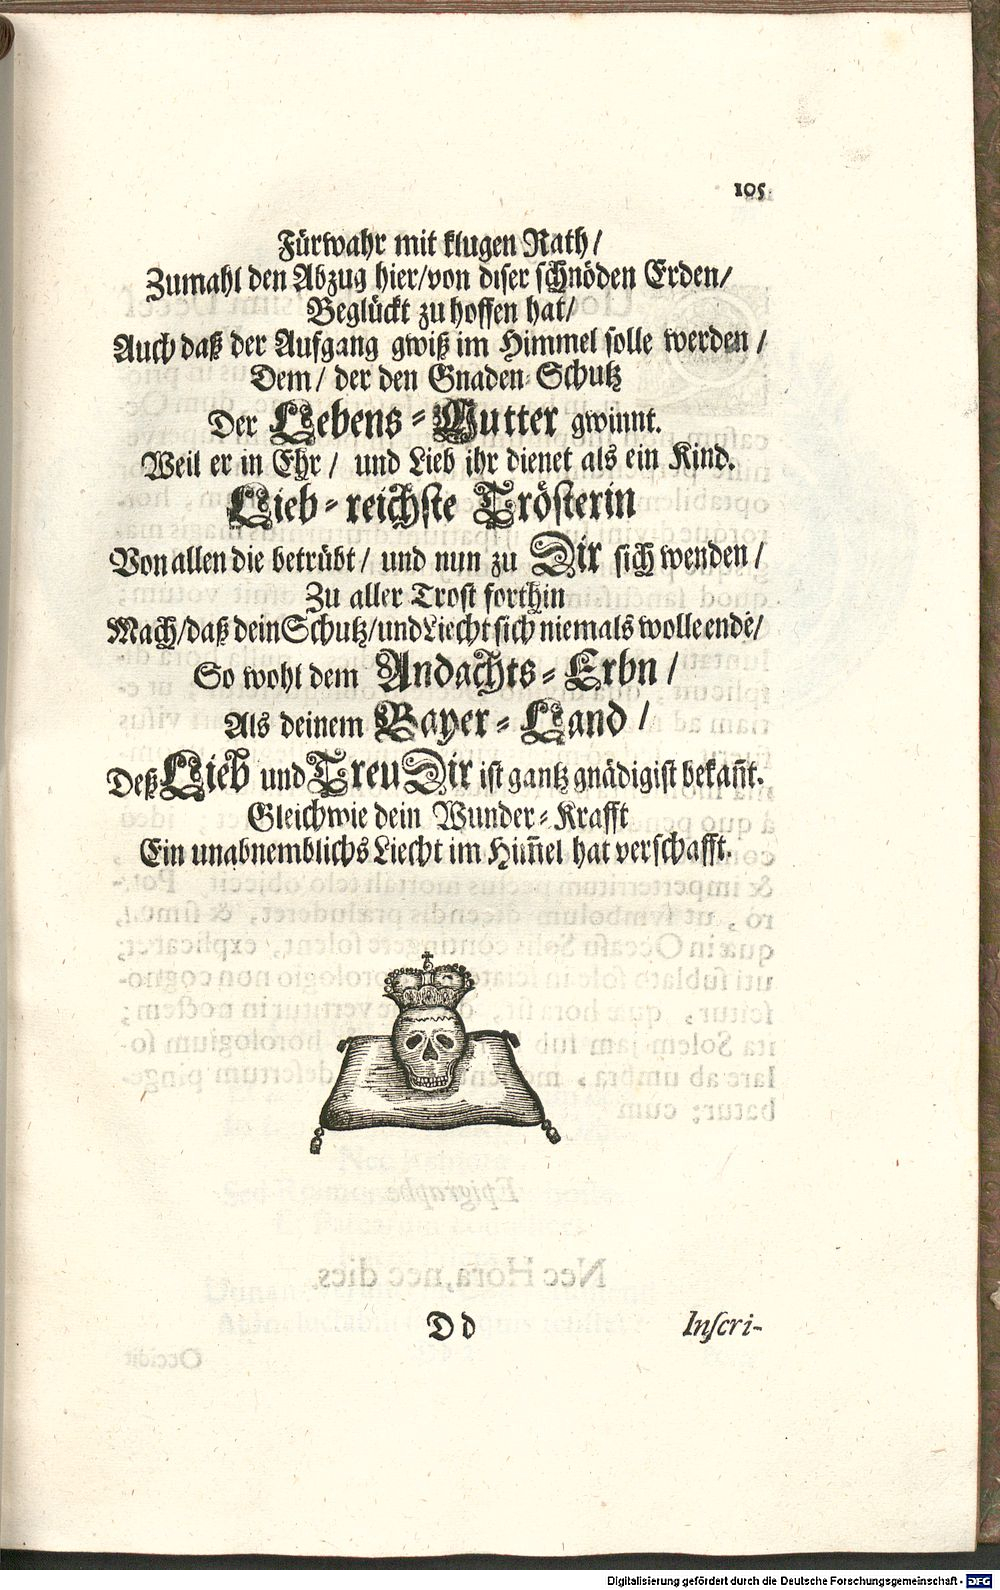 105
Fürwahr mit klugen Rath /
Zumahl den Abzug hier / von diser schnöden Erden /
Beglückt zu hoffen hat /
Auch daß der Aufgang gwiß im Himmel solle werden /
Dem / der den Gnaden-Schutz
Der Lebens-Mutter gwinnt.
Weil er in Ehr / und Lieb ihr dienet als ein Kind.
Lieb-reichste Trösterin
Von allen die betrübt / und nun zu Dir sich wenden /
Zu aller Trost forthin
Mach / daß dein Schutz / und Liecht sich niemals wolle endē /
So wohl dem Andachts-Erbn /
Als deinem Bayer-Land /
Deß Lieb und Treu Dir ist gantz gnädigist bekañt.
Gleichwie dein Wunder-Krafft
Ein unabnemblichs Liecht im Him̃el hat verschafft.
D d
Inscri-
Digitalisierung gefördert durch die Deutsche Forschungsgemeinschaft - DFG